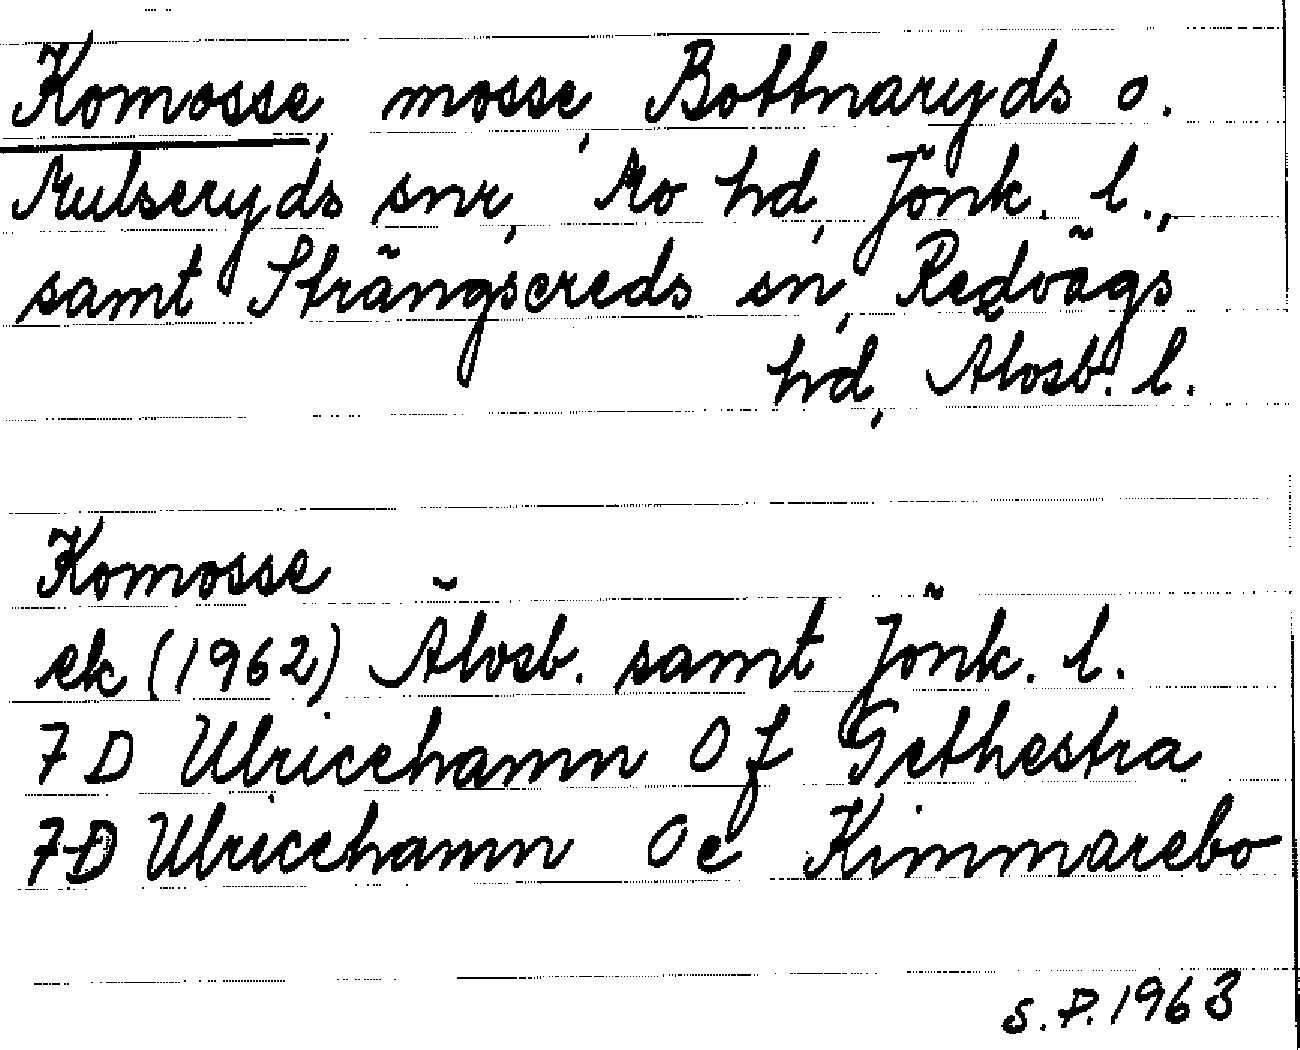 Komosse, mosse, Bottnaryds o.
Mulseryds snr, Mo hd, Jönk. l.,
samt Strängsereds sn, Redvägs
hd, Älvsb. l.
Komosse
ek (1962) Älvsb. samt Jönk. l.
7 D Ulricehamn 0 f Gethestra
7 D Ulricehamn 0 e Kimmarebo
S.P. 1963